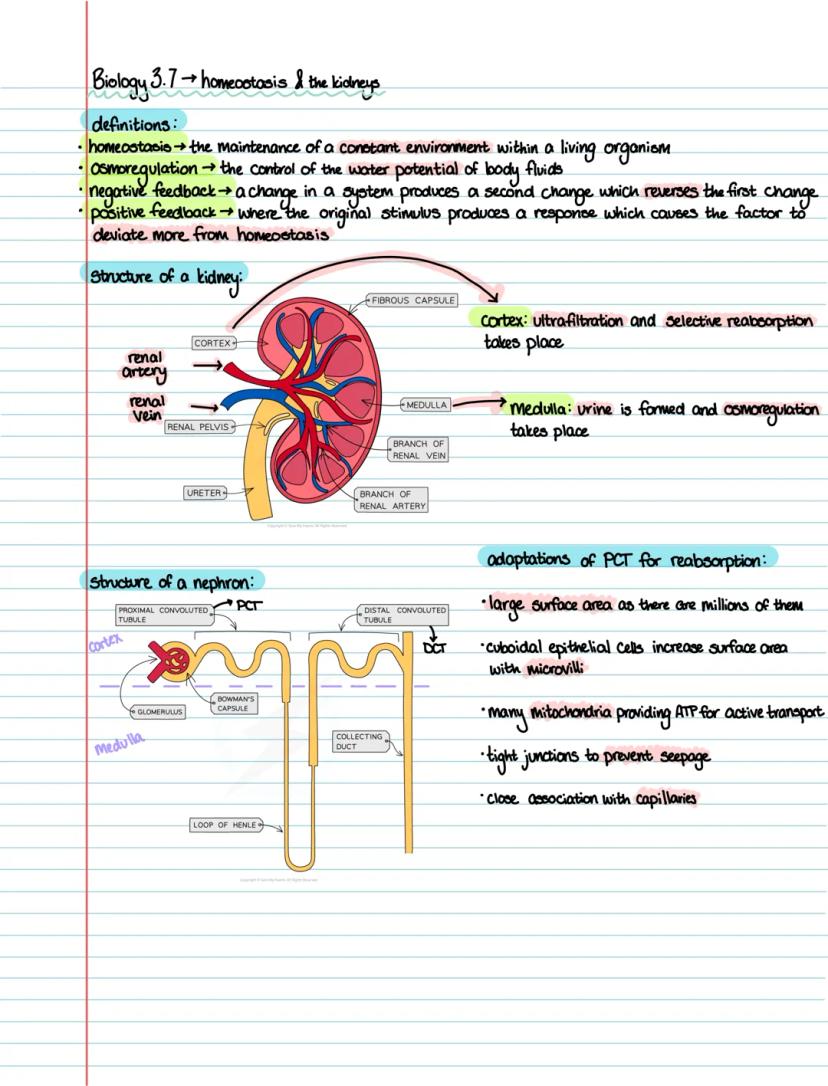 Biology 3.7 → homeostasis & the kidneys
definitions:
· homeostasis → the maintenance of a constant environment within a living organism
· osmoregulation → the control of the water potential of body fluids
· negative feedback → a change in a system produces a second change which reverses the first change
· positive feedback → where the original stimulus produces a response which causes the factor to
deviate more from homeostasis
structure of a kidney:
FIBROUS CAPSULE
CORTEX
renal
artery
renal
vein
RENAL PELVIS
URETER
MEDULLA
BRANCH OF
RENAL VEIN
BRANCH OF
RENAL ARTERY
cortex: ultrafiltration and selective reabsorption
takes place
Medulla: urine is formed and osmoregulation
takes place
Copyright © Save My Exams. All Rights Reserved
structure of a nephron:
PROXIMAL CONVOLUTED
TUBULE
PCT
DISTAL CONVOLUTED
TUBULE
DCT
cortex
BOWMAN'S
CAPSULE
GLOMERULUS
medulla
COLLECTING
DUCT
LOOP OF HENLE
Copyright © Save My Exams. All Rights Reserved
adaptations of PCT for reabsorption:
· large surface area as there are millions of them
· cuboidal epithelial cells increase surface area
with microvilli
· many mitochondria providing ATP for active transport
· tight junctions to prevent seepage
· close association with capillaries